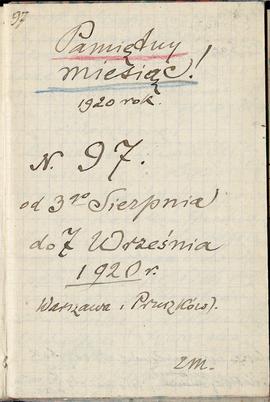 97
Pamiętny
miesiąc!
1920 rok.
N. 97.
od 3go Sierpnia
do 7 Września
1920 r.
Warszawa i Pruszków).
2m.